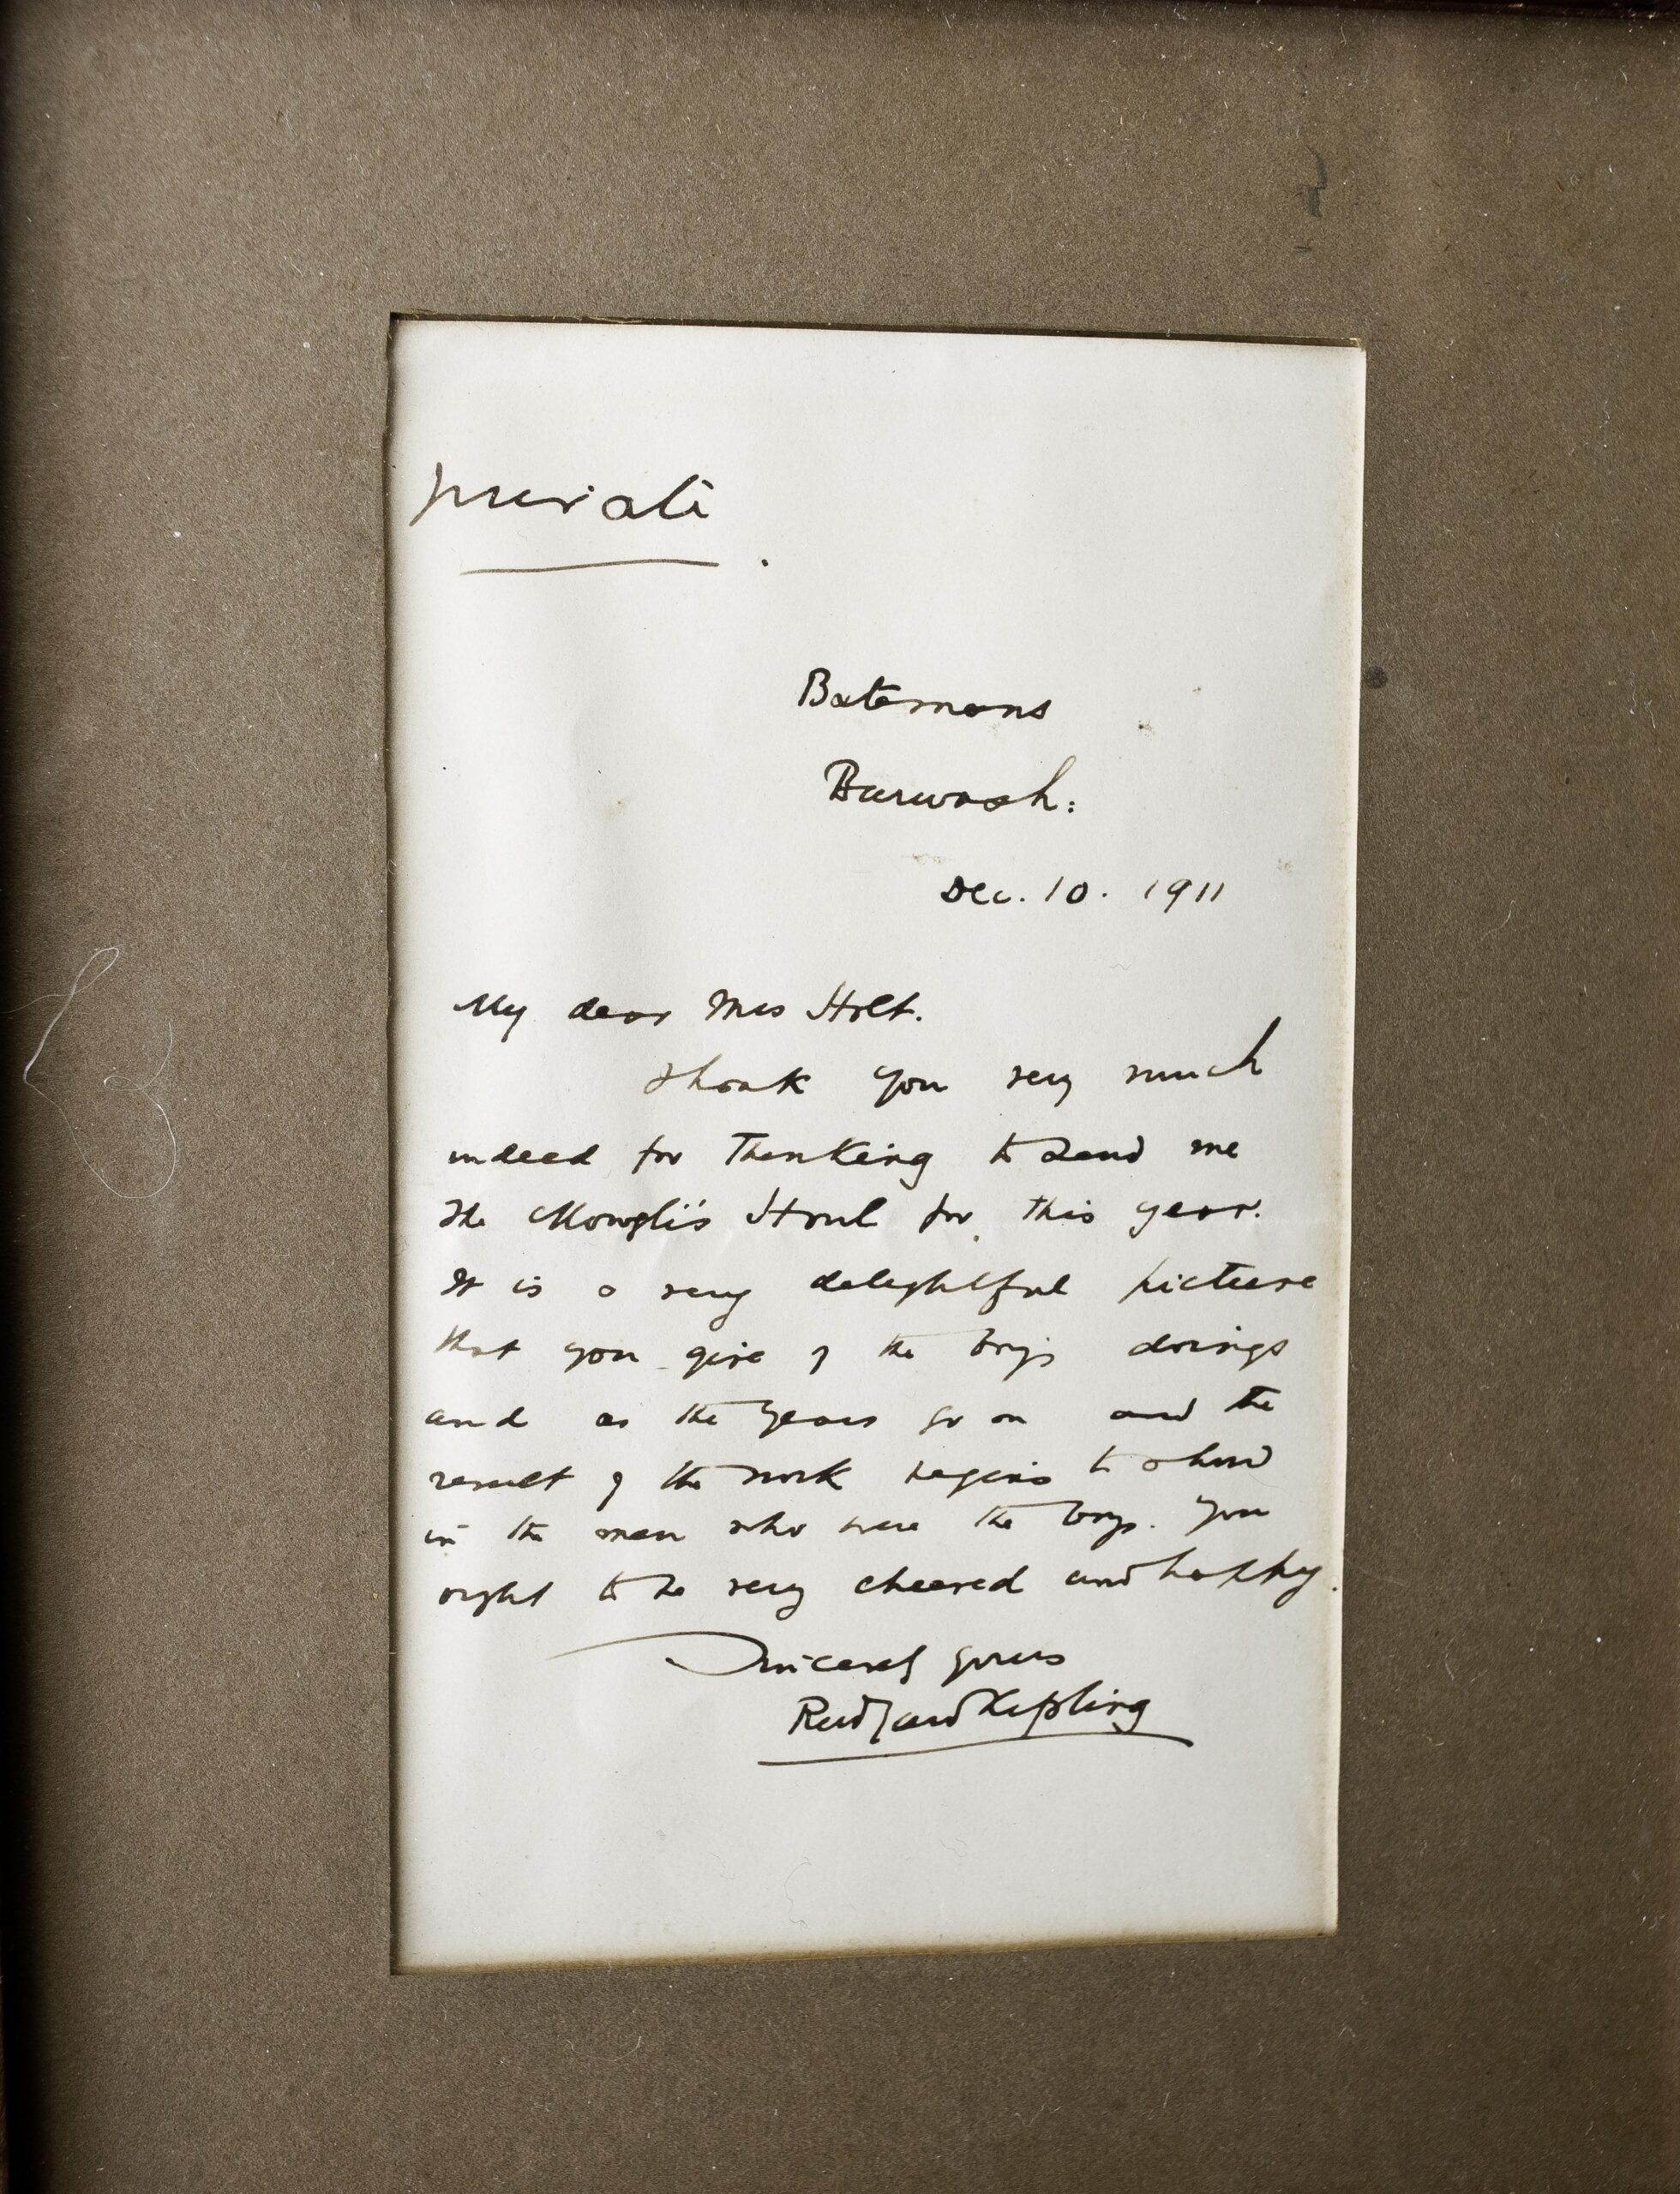 private.
Batemans
Burwash:
Dec. 10. 1911
My dear Mrs Holt.
Thank you very much
indeed for thinking to send me
the Mowgli's Howl for this year.
It is a very delightful picture
that you give of the boys doings
and as the years go on and the
result of the work begins to show
in the men who were the boys. you
ought to be very cheered and happy.
Sincerely yours
Rudyard Kipling